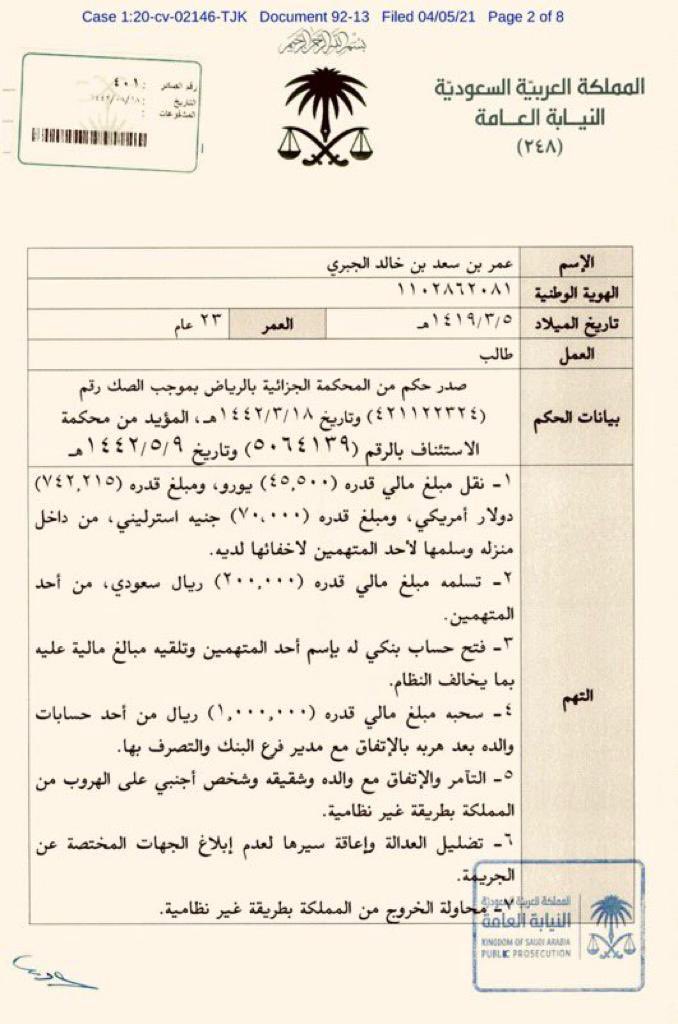 Case 1:20-cv-02146-TJK Document 92-13 Filed 04/05/21 Page 2 of 8
بسم الله الرحمن الرحيم
المملكة العربية السعودية
النيابة العامة
(٢٤٨)
رقم الصادر : ٤٠١
التاريخ :
المشفوعات :
الإسم عمر بن سعد بن خالد الجبري
الهوية الوطنية ١١٠٢٨٦٢٠٨١
تاريخ الميلاد ١٤١٩/٣/٥هـ العمر ٢٣ عام
العمل طالب
بيانات الحكم
صدر حكم من المحكمة الجزائية بالرياض بموجب الصك رقم
(٤٢١١٢٢٣٢٤) وتاريخ ١٤٤٢/٣/١٨هـ، المؤيد من محكمة
الاستئناف بالرقم (٥٠٦٤١٣٩) وتاريخ ١٤٤٢/٥/٩هـ
التهم
١- نقل مبلغ مالي قدره (٤٥,٥٠٠) يورو، ومبلغ قدره (٧٤٢,٢١٥)
دولار أمريكي، ومبلغ قدره (٧٠,٠٠٠) جنيه استرليني، من داخل
منزله وسلمها لأحد المتهمين لاخفائها لديه.
٢- تسلمه مبلغ مالي قدره (٢٠٠,٠٠٠) ريال سعودي، من أحد
المتهمين.
٣- فتح حساب بنكي له بإسم أحد المتهمين وتلقيه مبالغ مالية عليه
بما يخالف النظام.
٤- سحبه مبلغ مالي قدره (١,٠٠٠,٠٠٠) ريال من أحد حسابات
والده بعد هربه بالإتفاق مع مدير فرع البنك والتصرف بها.
٥- التآمر والإتفاق مع والده وشقيقه وشخص أجنبي على الهروب من
المملكة بطريقة غير نظامية.
٦- تضليل العدالة وإعاقة سيرها لعدم إبلاغ الجهات المختصة عن
الجريمة.
٧- محاولة الخروج من المملكة بطريقة غير نظامية.
المملكة العربية السعودية
النيابة العامة
KINGDOM OF SAUDI ARABIA
PUBLIC PROSECUTION